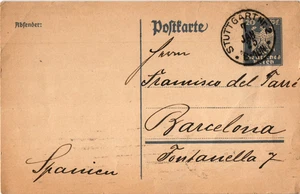 Postkarte
STUTTGART
Absender:
Herrn
Francisco del Tarré
Barcelona
Spanien
Fontanella 7